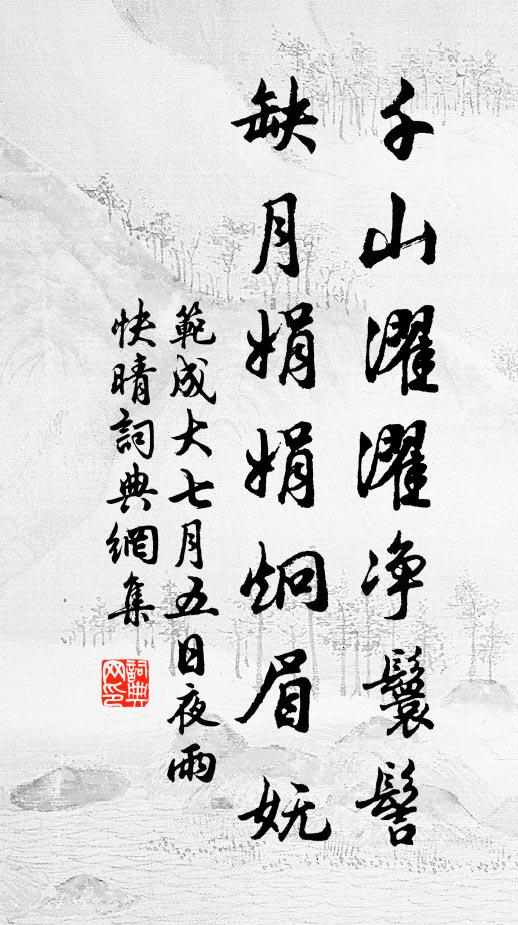 千山濯濯净鬟髻
缺月娟娟炯眉妩
範成大七月五日夜雨
快晴詞典網集
詞典網印